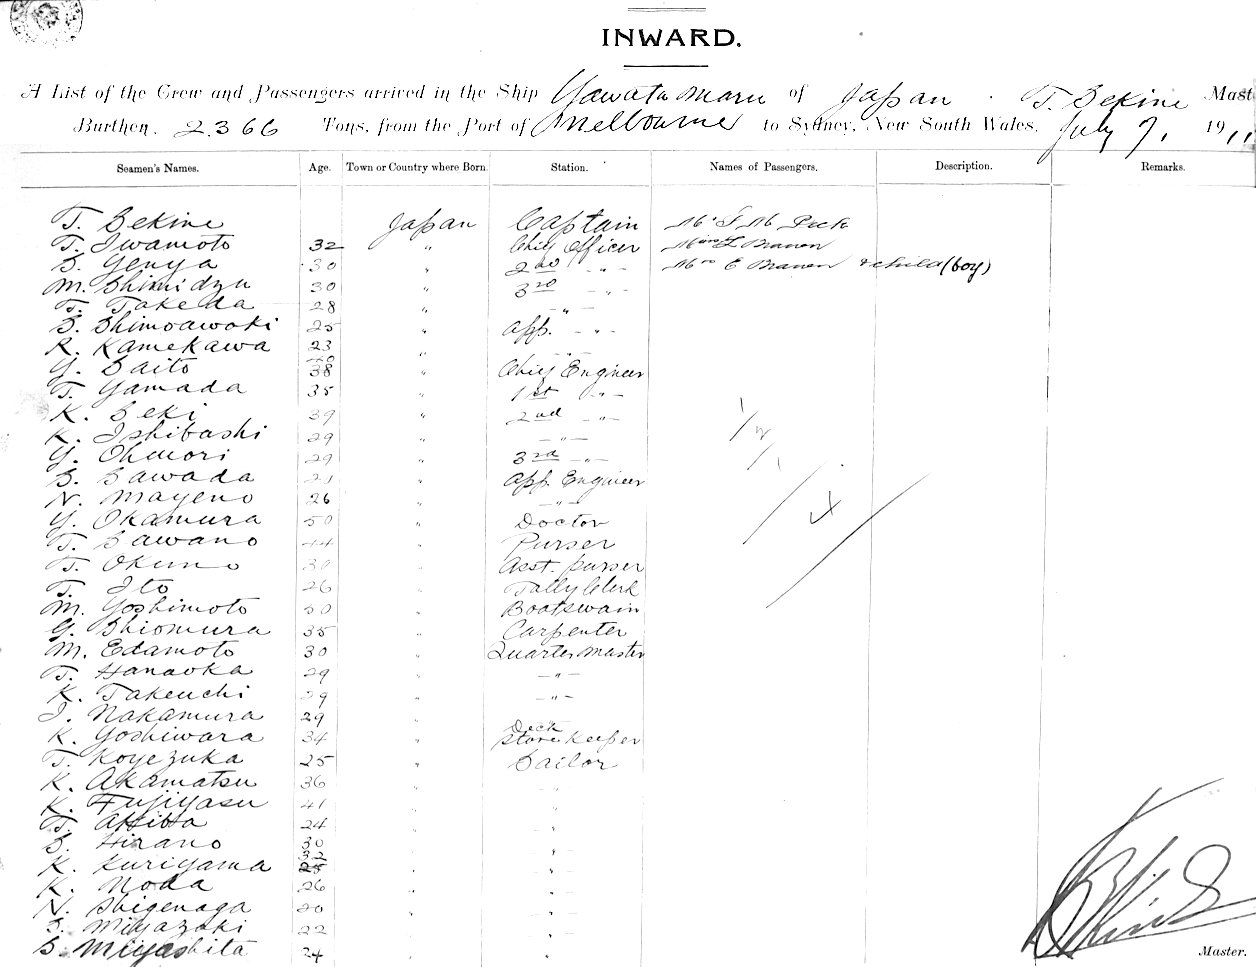 INWARD.
A List of the Crew and Passengers arrived in the Ship Yawata Maru of Japan. T. Sekine Mast
Burthen, 2366 Tons, from the Port of Melbourne to Sydney, New South Wales, July 7, 1911
Seamen's Names. Age. Town or Country where Born. Station. Names of Passengers. Description. Remarks.
T. Sekine Japan Captain Peck
T. Iwamoto 32 " Chief Officer
S. Genya 30 " 2nd - " - & child (boy)
M. Shimidzu 30 " 3rd - " -
T. Takeda 28 " - " -
S. Shimoawoki 25 " App. - " -
R. Kamekawa 23 " - " -
Y. Saito 38 " Chief Engineer
T. Yamada 35 " 1st - " -
K. Seki 39 " 2nd - " -
K. Ishibashi 29 " - " -
Y. Ohmori 29 " 3rd - " -
S. Sawada 21 " App. Engineer
N. Mayeno 26 " - " -
Y. Okamura 50 " Doctor
T. Sawano 44 " Purser
T. Okuno 30 " Asst. purser
T. Ito 26 " Tally Clerk
M. Yoshimoto 30 " Boatswain
G. Shiomura 35 " Carpenter
M. Edamoto 30 " Quarter master
T. Hanaoka 29 " - " -
K. Takeuchi 29 " - " -
I. Nakamura 29 "
K. Yoshiwara 34 " Deck store keeper
T. Koyezuka 25 " Sailor
K. Akamatsu 36 " "
K. Fujiyasu 41 " "
T. Akiba 24 " "
S. Hirano 30 " "
K. Kuriyama 32 " "
K. Noda 26 " "
N. Shigenaga 20 " "
S. Miyazaki 22 " "
S. Miyashita 24 " "
Master.